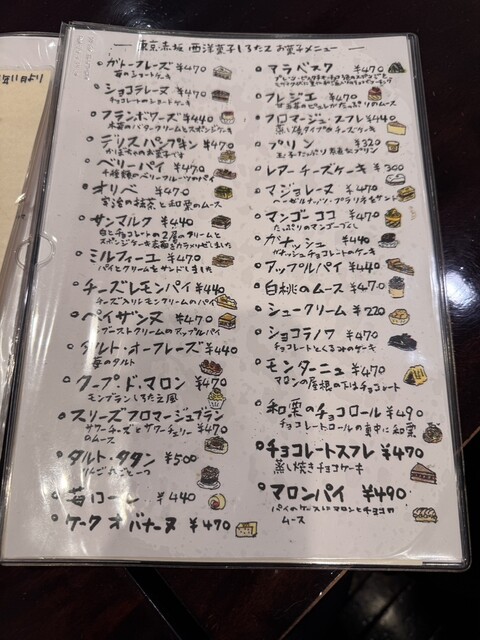 年11月より
東京・赤坂 西洋菓子しろたえ お菓子メニュー
ガトーフレーズ ¥470
苺のショートケーキ
ショコラレーヌ ¥470
チョコレートのショートケーキ
フランボワーズ ¥440
木苺のバタークリームとスポンジケーキ
デリスパンプキン ¥470
かぼちゃのお菓子です
ベリーパイ ¥470
十種類のベリーフルーツのパイ
オリベ ¥470
宇治の抹茶と和栗のムース
サンマルク ¥440
白とチョコレートの2層のクリームと
スポンジケーキ表面をカラメリゼしました
ミルフィーユ ¥440
パイとクリームをサンドしました
チーズレモンパイ ¥440
チーズ入りレモンクリームのパイ
ペイザンヌ ¥470
ブーストクリームのアップルパイ
タルト・オ・フレーズ ¥440
苺のタルト
クープ・ド・マロン ¥470
モンブランしろたえ風
スリーズフロマージュブラン
サワーチーズとサワーチェリー ¥470
のムース
タルト・タタン ¥500
りんごたごと一つ
苺ロール ¥440
ケークオバナーヌ ¥470
マラベスク ¥470
フレジエ ¥470
フロマージュ・スフレ ¥440
蒸し焼タイプのチーズケーキ
プリン ¥320
玉子たっぷり素直なプリン
レアーチーズケーキ ¥300
マジョレーヌ ¥470
ヘーゼルナッツ・プラリネをサンド
マンゴーココ ¥470
たっぷりのマンゴーづくし
ガナッシュ ¥440
ガナッシュチョコレートのケーキ
アップルパイ ¥440
白桃のムース ¥470
シュークリーム ¥220
ショコラノワ ¥470
チョコレートとくるみのケーキ
モンターニュ ¥470
マロンの屋根の下はチョコレート
和栗のチョコロール ¥490
チョコレートロールの真中に和栗
チョコレートスフレ ¥470
蒸し焼きチョコケーキ
マロンパイ ¥490
パイのケースにマロンとチョコの
ムース